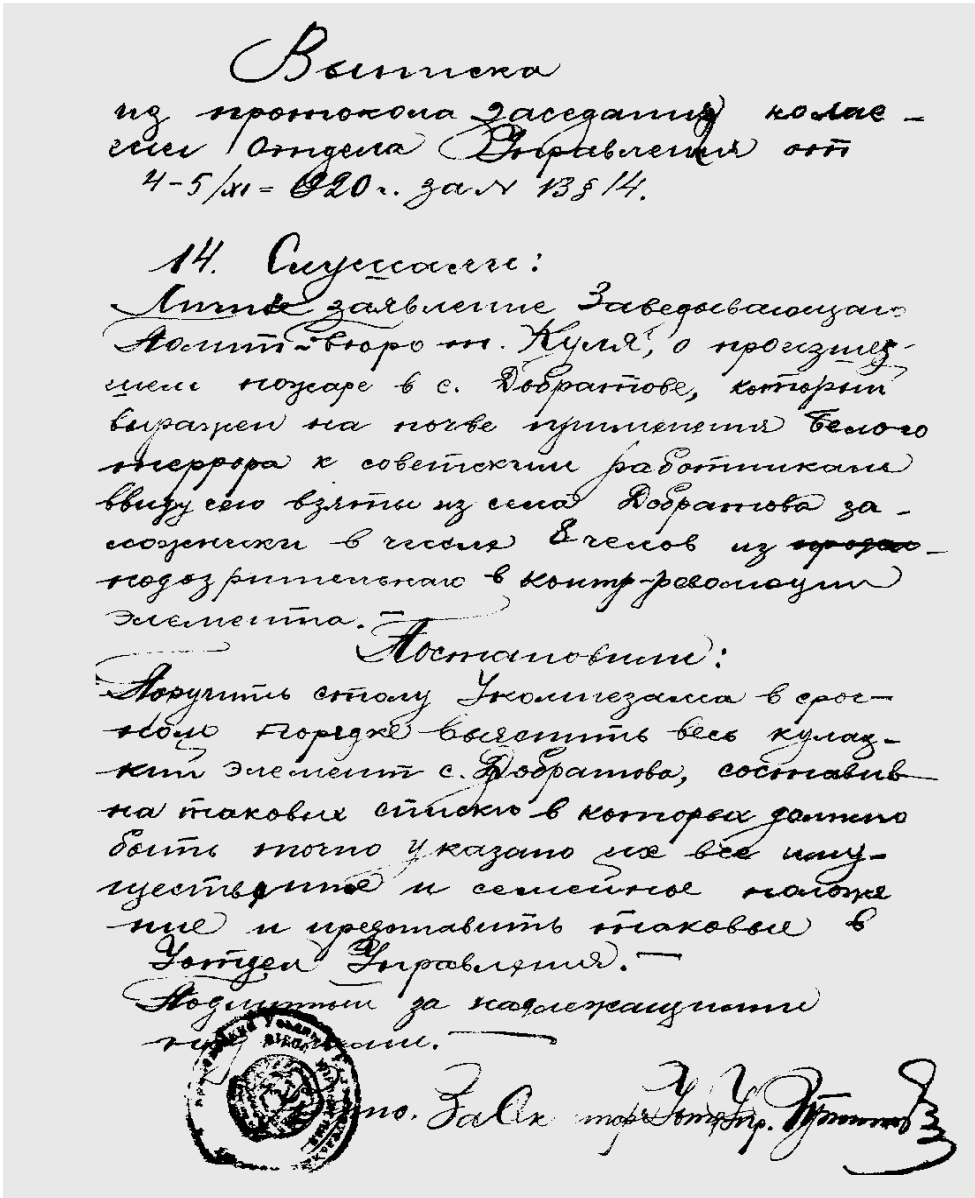 Выписка
из протокола заседания колле-
гии Отдела Управления от
4-5/XI = 1920 г. за N 13 § 14.
14. Слушали:
заявление Заведывающаго
Полит-бюро т. Куля, о происшед-
шем пожаре в с. Добратове, который
выражен на почве применения белого
террора к советским работникам
ввиду сего взяты из села Добратова за-
ложники в числе 8 челов из
подозрительнаго в контр-революции
элемента. —
Постановили:
Поручить столу Укомнезама в сроч-
ном порядке выяснить весь кулац-
кий элемент с. Добратова, составив
на таковых списки в которых должно
быть точно указано их все иму-
щественное и семейное положе
ние и представить таковые в
Уотдел Управления. —
Подлинный за надлежащими
За